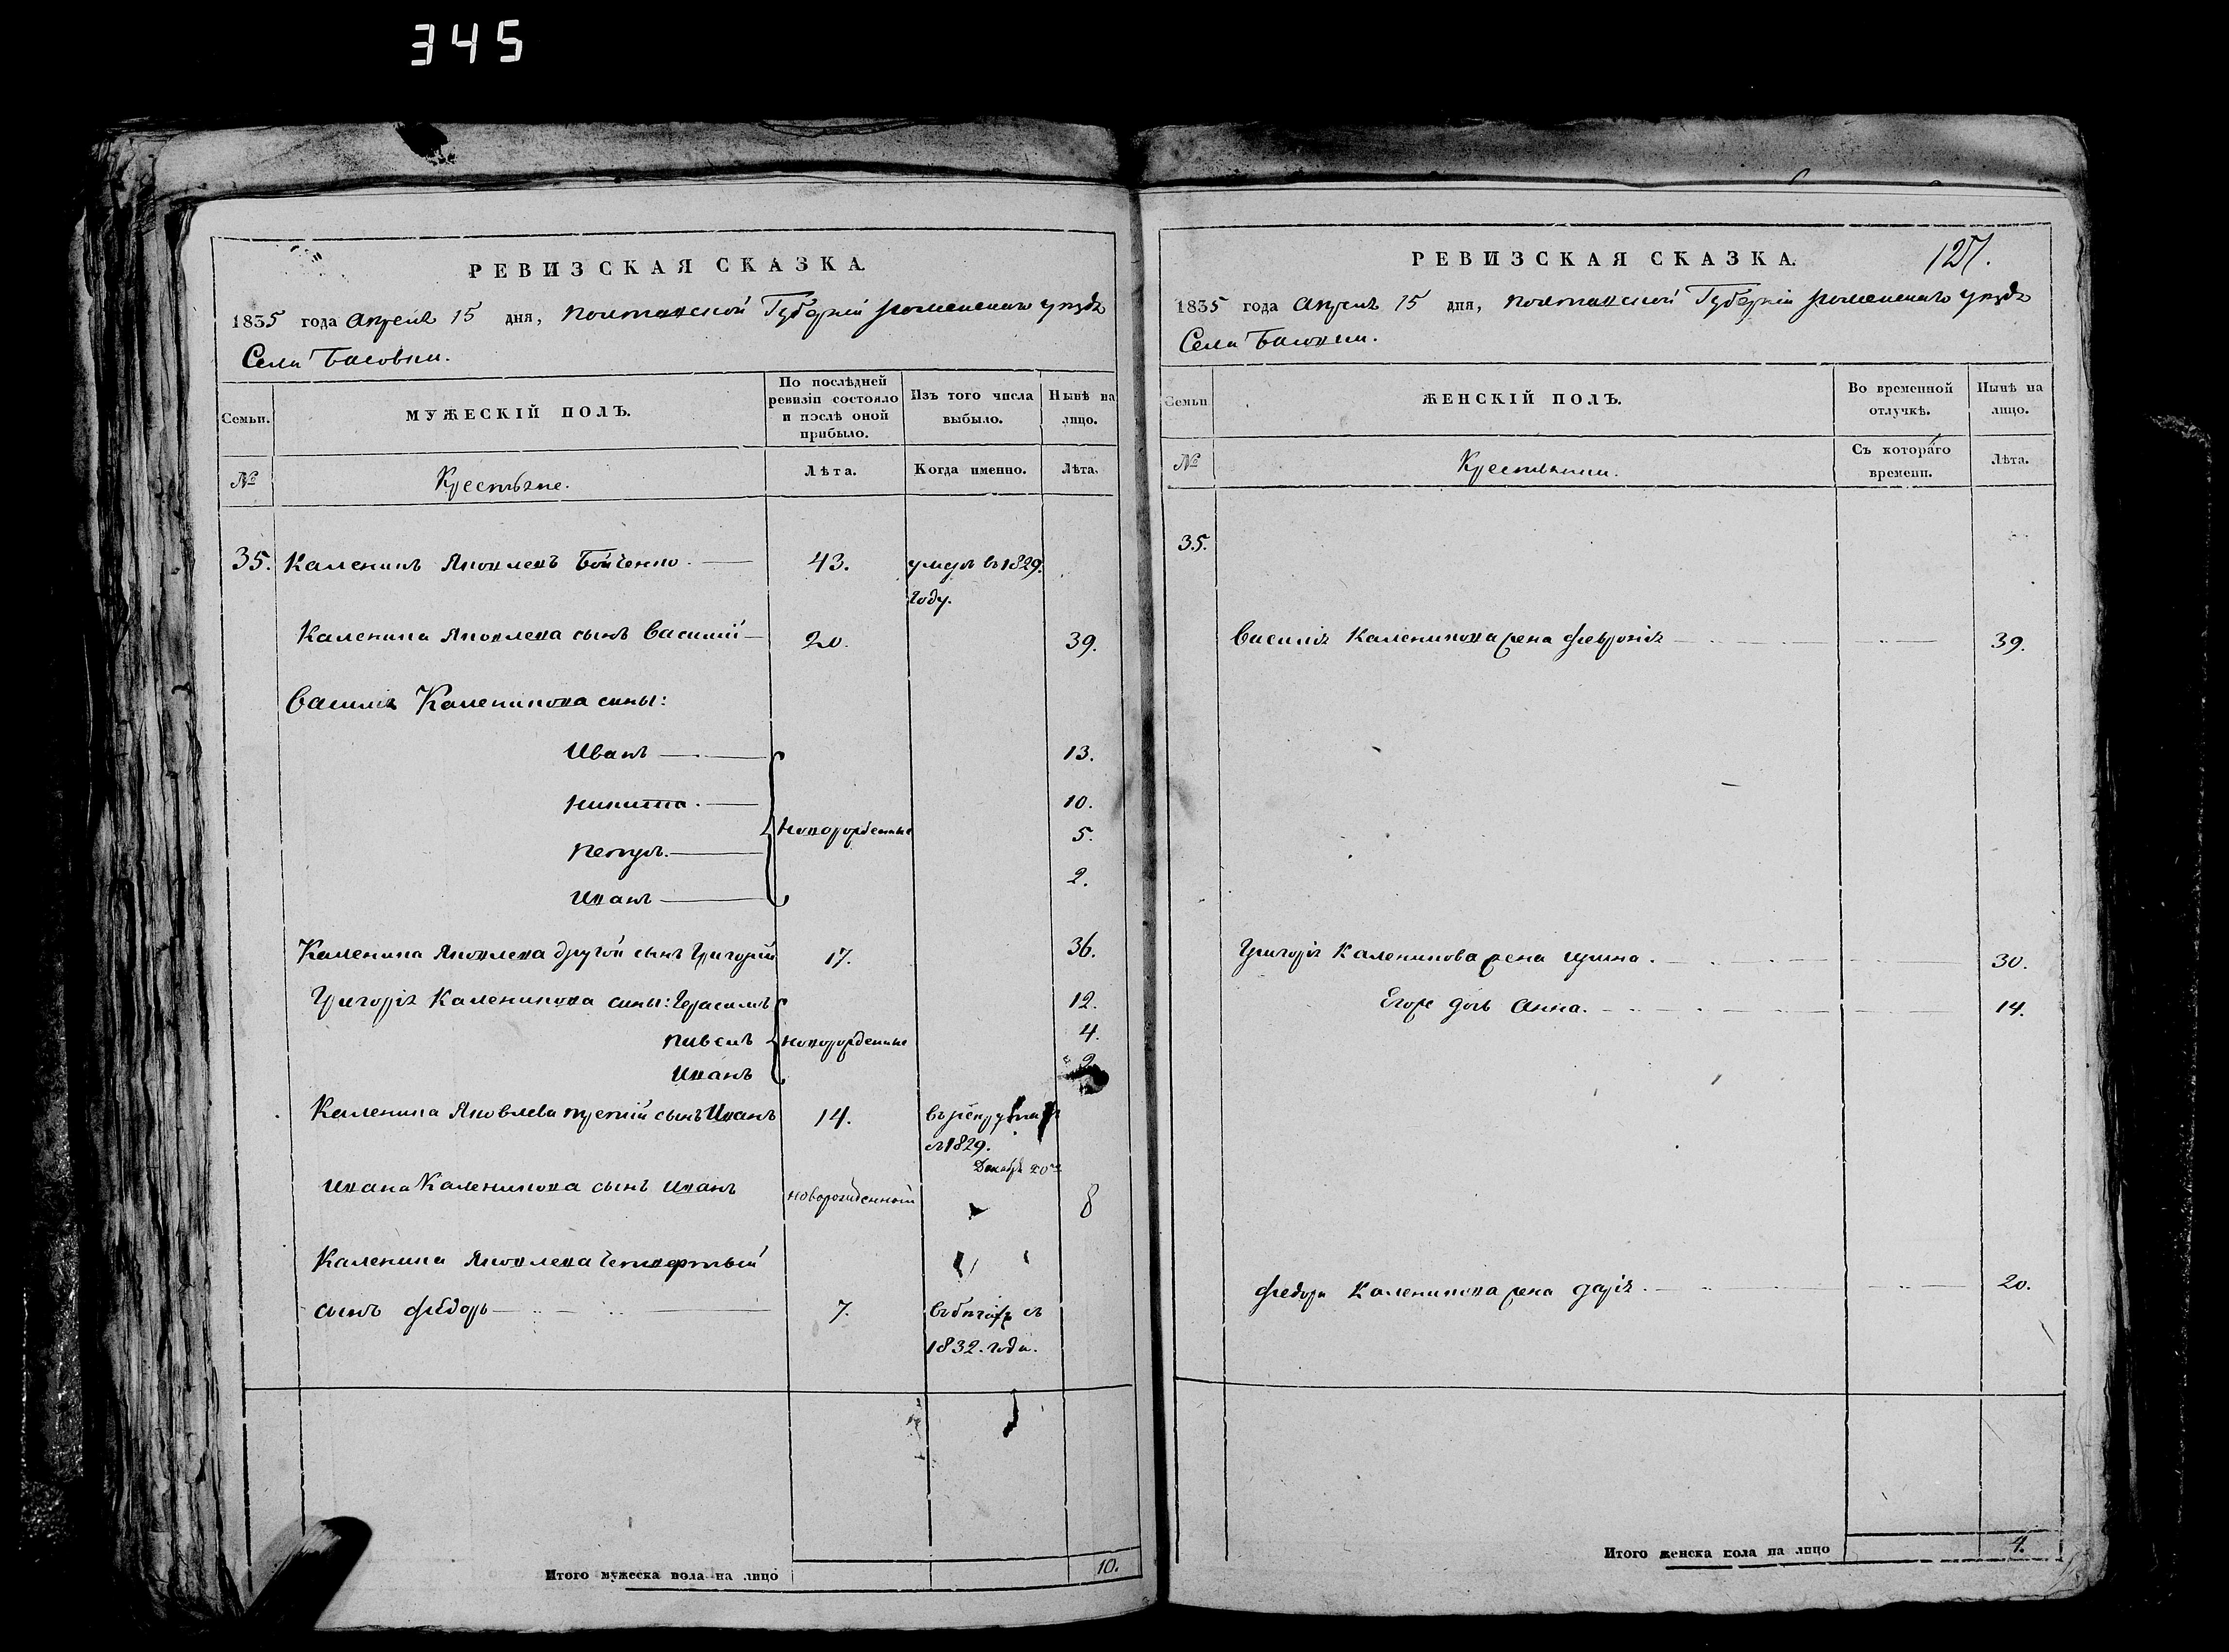 345
РЕВИЗСКАЯ СКАЗКА.
1835 года Апреля 15 дня, Полтавской Губерніи Роменскаго уезда
Села Басовки.
Семьи.
МУЖЕСКІЙ ПОЛЪ.
По послѣдней ревизіи состояло и послѣ оной прибыло.
Изъ того числа выбыло.
Нынѣ на лицо.
№
Крестьяне.
Лѣта.
Когда именно.
Лѣта.
35. Каленикъ Яковлевъ Бойченко 43. умеръ в 1829.
году.
Каленика Яковлева сынъ Василий 20. 39.
Василия Каленикова сины:
Иванъ 13.
Никита 10.
Новорожденные
Петръ 5.
Иванъ 2.
Каленика Яковлева другой сынъ Григорий 17. 36.
Григорія Каленикова сины: Герасимъ 12.
Павелъ новорожденные 4.
Иванъ 2
Каленика Яковлева третій сынъ Иванъ 14. въ рекрутахъ
съ 1829.
Декабря 20го
Ивана Каленикова сынъ Иванъ новорожденный 8
Каленика Яковлева четвертый
сынъ Федоръ 7. въ бегахъ съ
1832. года.
Итого мужеска пола на лицо 10.
РЕВИЗСКАЯ СКАЗКА. 121.
1835 года Апреля 15 дня, Полтавской Губерніи Роменскаго уезда
Села Басовки.
Семьи
ЖЕНСКІЙ ПОЛЪ.
Во временной отлучкѣ.
Нынѣ на лицо.
№
Крестьянки.
Съ котораго времени.
Лѣта.
35.
Василия Каленикова жена Феврония 39.
Григорія Каленикова жена Ирина 30.
Егоже дочь Анна. 14.
Федора Каленикова жена Дария 20.
Итого женска пола на лицо 4.